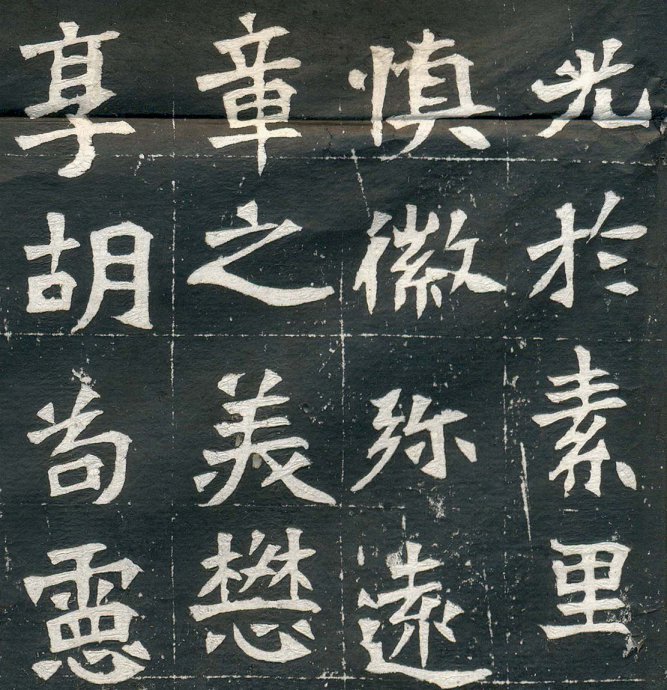 光於素里
慎徽弥遠
章之美懋
享胡苟靈